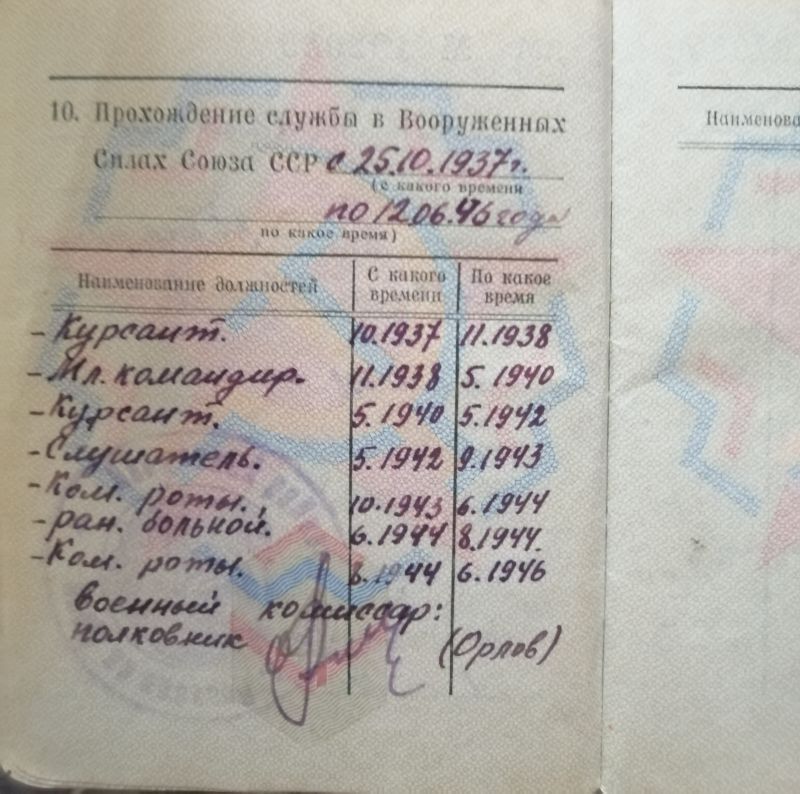 10. Прохождение службы в Вооруженных
Силах Союза ССР с 25.10.1937г.
(с какого времени
по 12.06.46 года
по какое время)
Наименование должностей С какого времени По какое время
- Курсант. 10.1937 11.1938
- Мл. командир. 11.1938 5.1940
- Курсант. 5.1940 5.1942
- Слушатель. 5.1942 9.1943
- Ком. роты. 10.1943 6.1944
- ран. больной. 6.1944 8.1944.
- Ком. роты. 8.1944 6.1946
военный комиссар:
полковник (Орлов)
Наименова